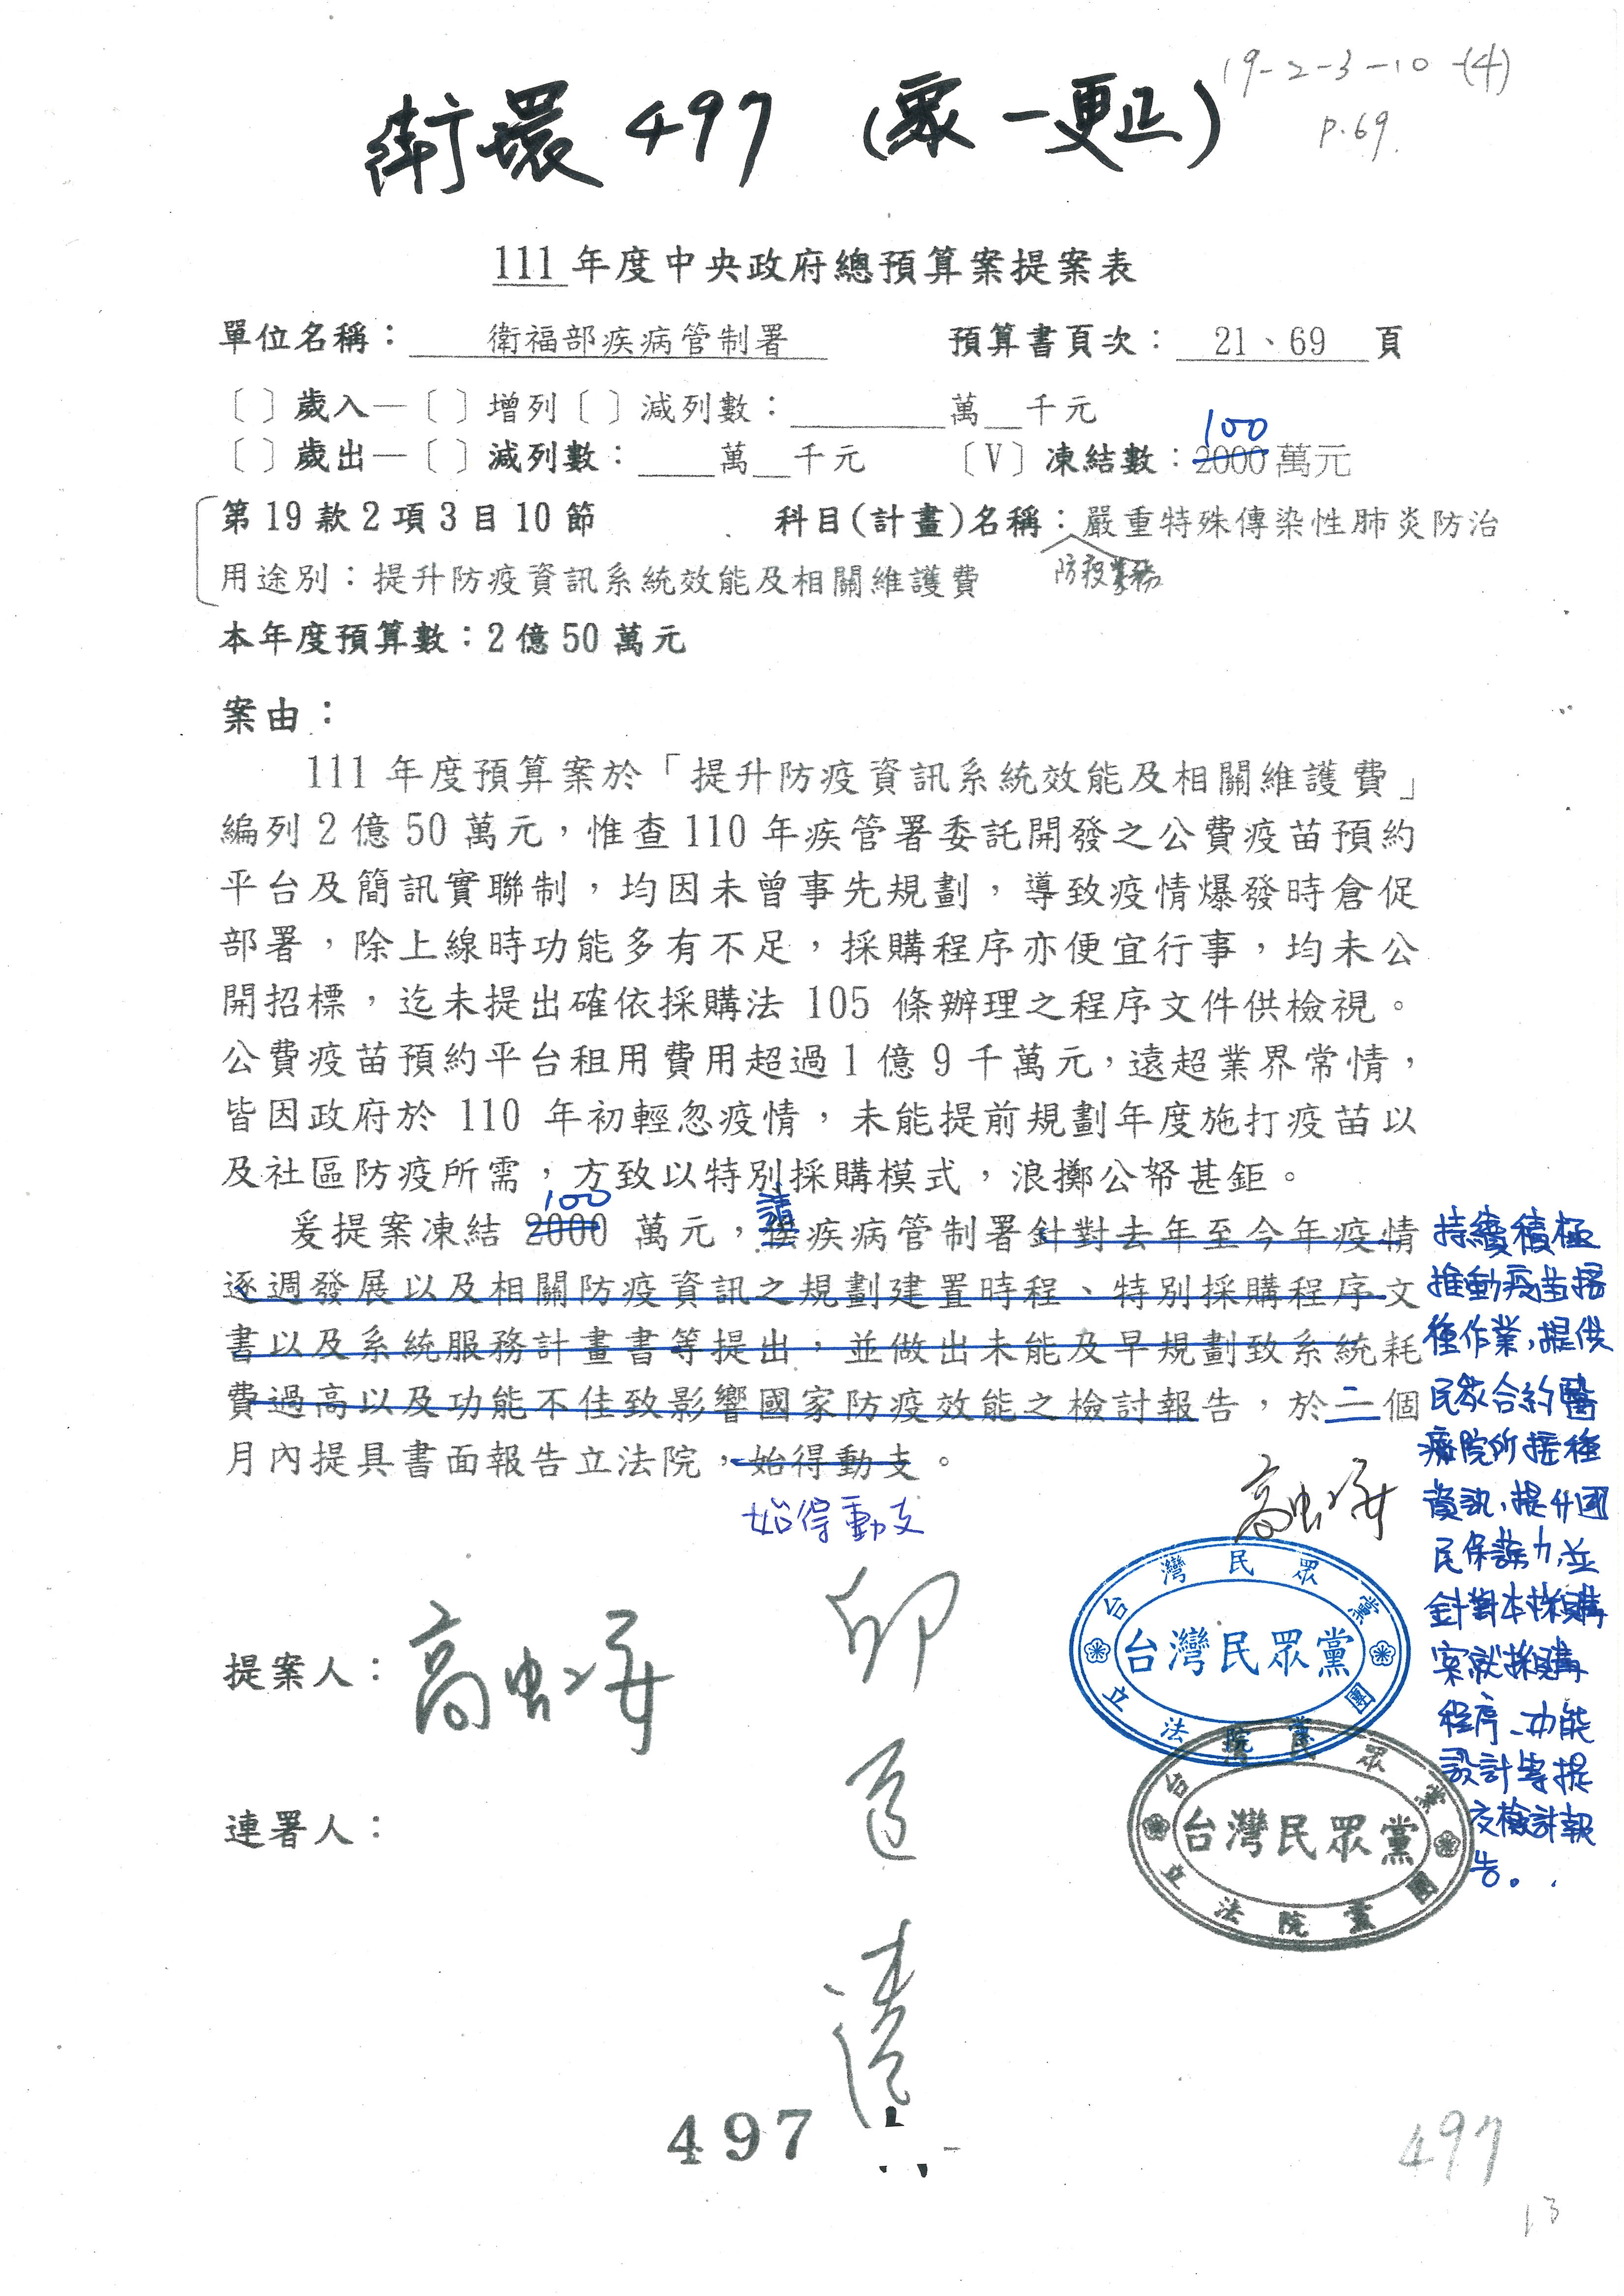 19-2-3-10-(4)
p.69.
衛環 497 (眾一更正)
111 年度中央政府總預算案提案表
單位名稱： 衛福部疾病管制署 預算書頁次： 21、69 頁
〔 〕歲入—〔 〕增列〔 〕減列數：＿＿＿＿萬＿千元
100
〔 〕歲出—〔 〕減列數：＿＿萬＿千元 〔V〕凍結數：2000 萬元
第 19 款 2 項 3 目 10 節 科目(計畫)名稱：嚴重特殊傳染性肺炎防治
防疫業務
用途別：提升防疫資訊系統效能及相關維護費
本年度預算數：2 億 50 萬元
案由：
111 年度預算案於「提升防疫資訊系統效能及相關維護費」
編列 2 億 50 萬元，惟查 110 年疾管署委託開發之公費疫苗預約
平台及簡訊實聯制，均因未曾事先規劃，導致疫情爆發時倉促
部署，除上線時功能多有不足，採購程序亦便宜行事，均未公
開招標，迄未提出確依採購法 105 條辦理之程序文件供檢視。
公費疫苗預約平台租用費用超過 1 億 9 千萬元，遠超業界常情，
皆因政府於 110 年初輕忽疫情，未能提前規劃年度施打疫苗以
及社區防疫所需，方致以特別採購模式，浪擲公帑甚鉅。
100 請
爰提案凍結 2000 萬元，俟疾病管制署針對去年至今年疫情
逐週發展以及相關防疫資訊之規劃建置時程、特別採購程序文
書以及系統服務計畫書等提出，並做出未能及早規劃致系統耗
費過高以及功能不佳致影響國家防疫效能之檢討報告，於二個
月內提具書面報告立法院，始得動支。
始得動支
持續積極
推動疫苗接
種作業，提供
民眾合約醫
療院所接種
資訊，提升國
民保護力，並
針對本採購
案就採購
程序、功能
設計等提
交檢討報
告。
高虹安
提案人：高虹安
邱臣遠
連署人：
台灣民眾黨
台灣民眾黨
立法院黨團
台灣民眾黨
台灣民眾黨
立法院黨團
497
497
13